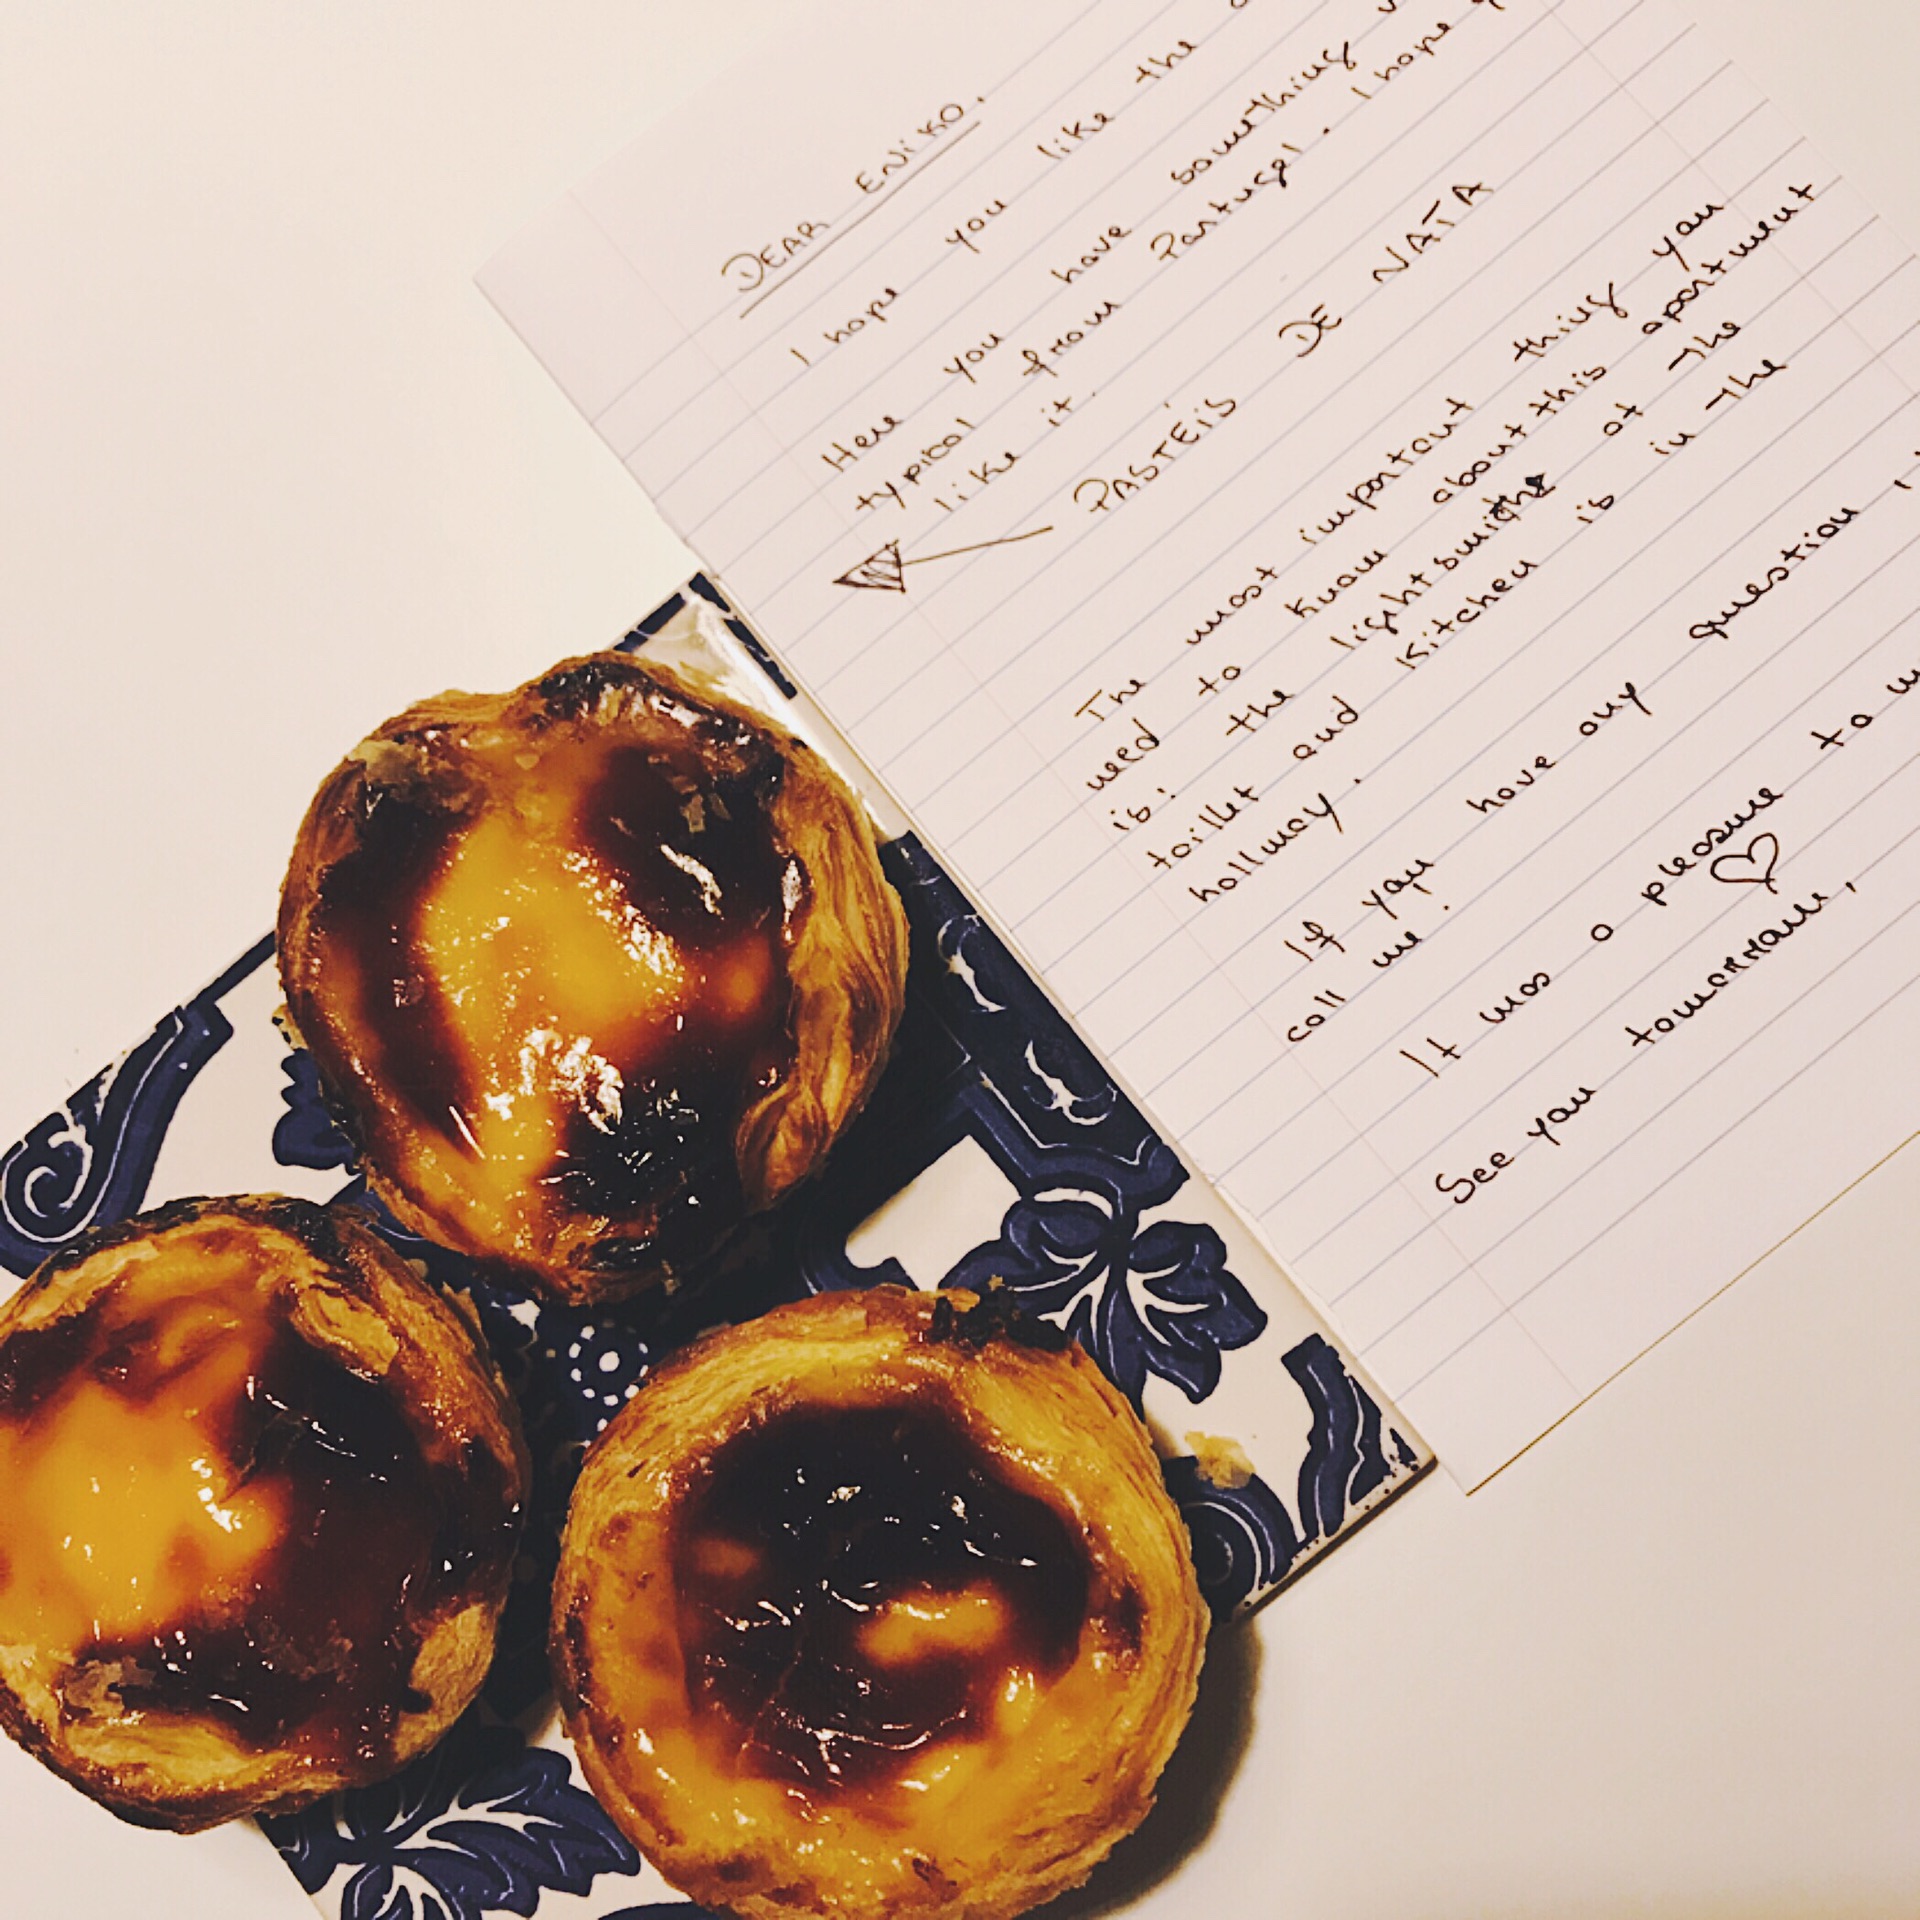 DEAR ENiKO,
I hope you like the
Here you have something
typical from Portugal. I hope
like it.
PASTÉiS DE NATA
The most important thing you
need to know about this apartment
is: the light swith at the
toillet and kitchen is in the
hollway.
If you have any question,
call me.
It was a pleasure to
See you tomorrow,